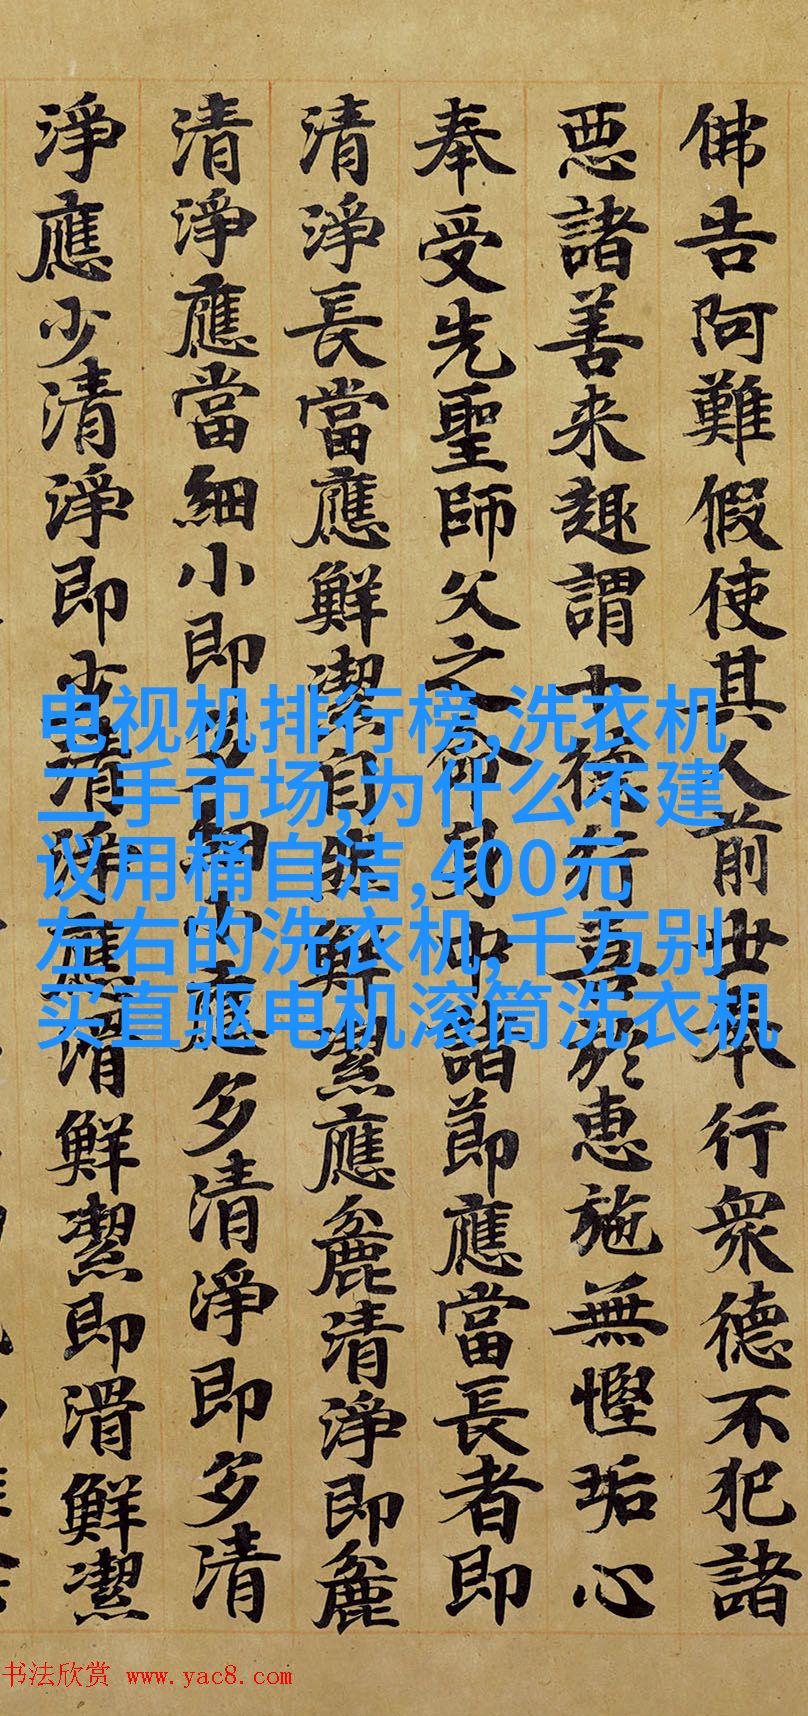 佛告阿難假使其人前世奉行衆德不犯諸
惡諸善来趣謂十德行喜於惠施無慳垢心
奉受先聖師父之命身中諸節應當長者即
清淨長當應鮮潔自然鮮潔應麁清淨即麁
清淨應當細小即細小應多清淨即多清
淨應少清淨即少清淨應滑鮮潔即滑鮮潔
电视机排行榜,洗衣机
二手市场,为什么不建
议用桶自洁,400元
左右的洗衣机,千万别
买直驱电机滚筒洗衣机
书法欣赏 www.yac8.com